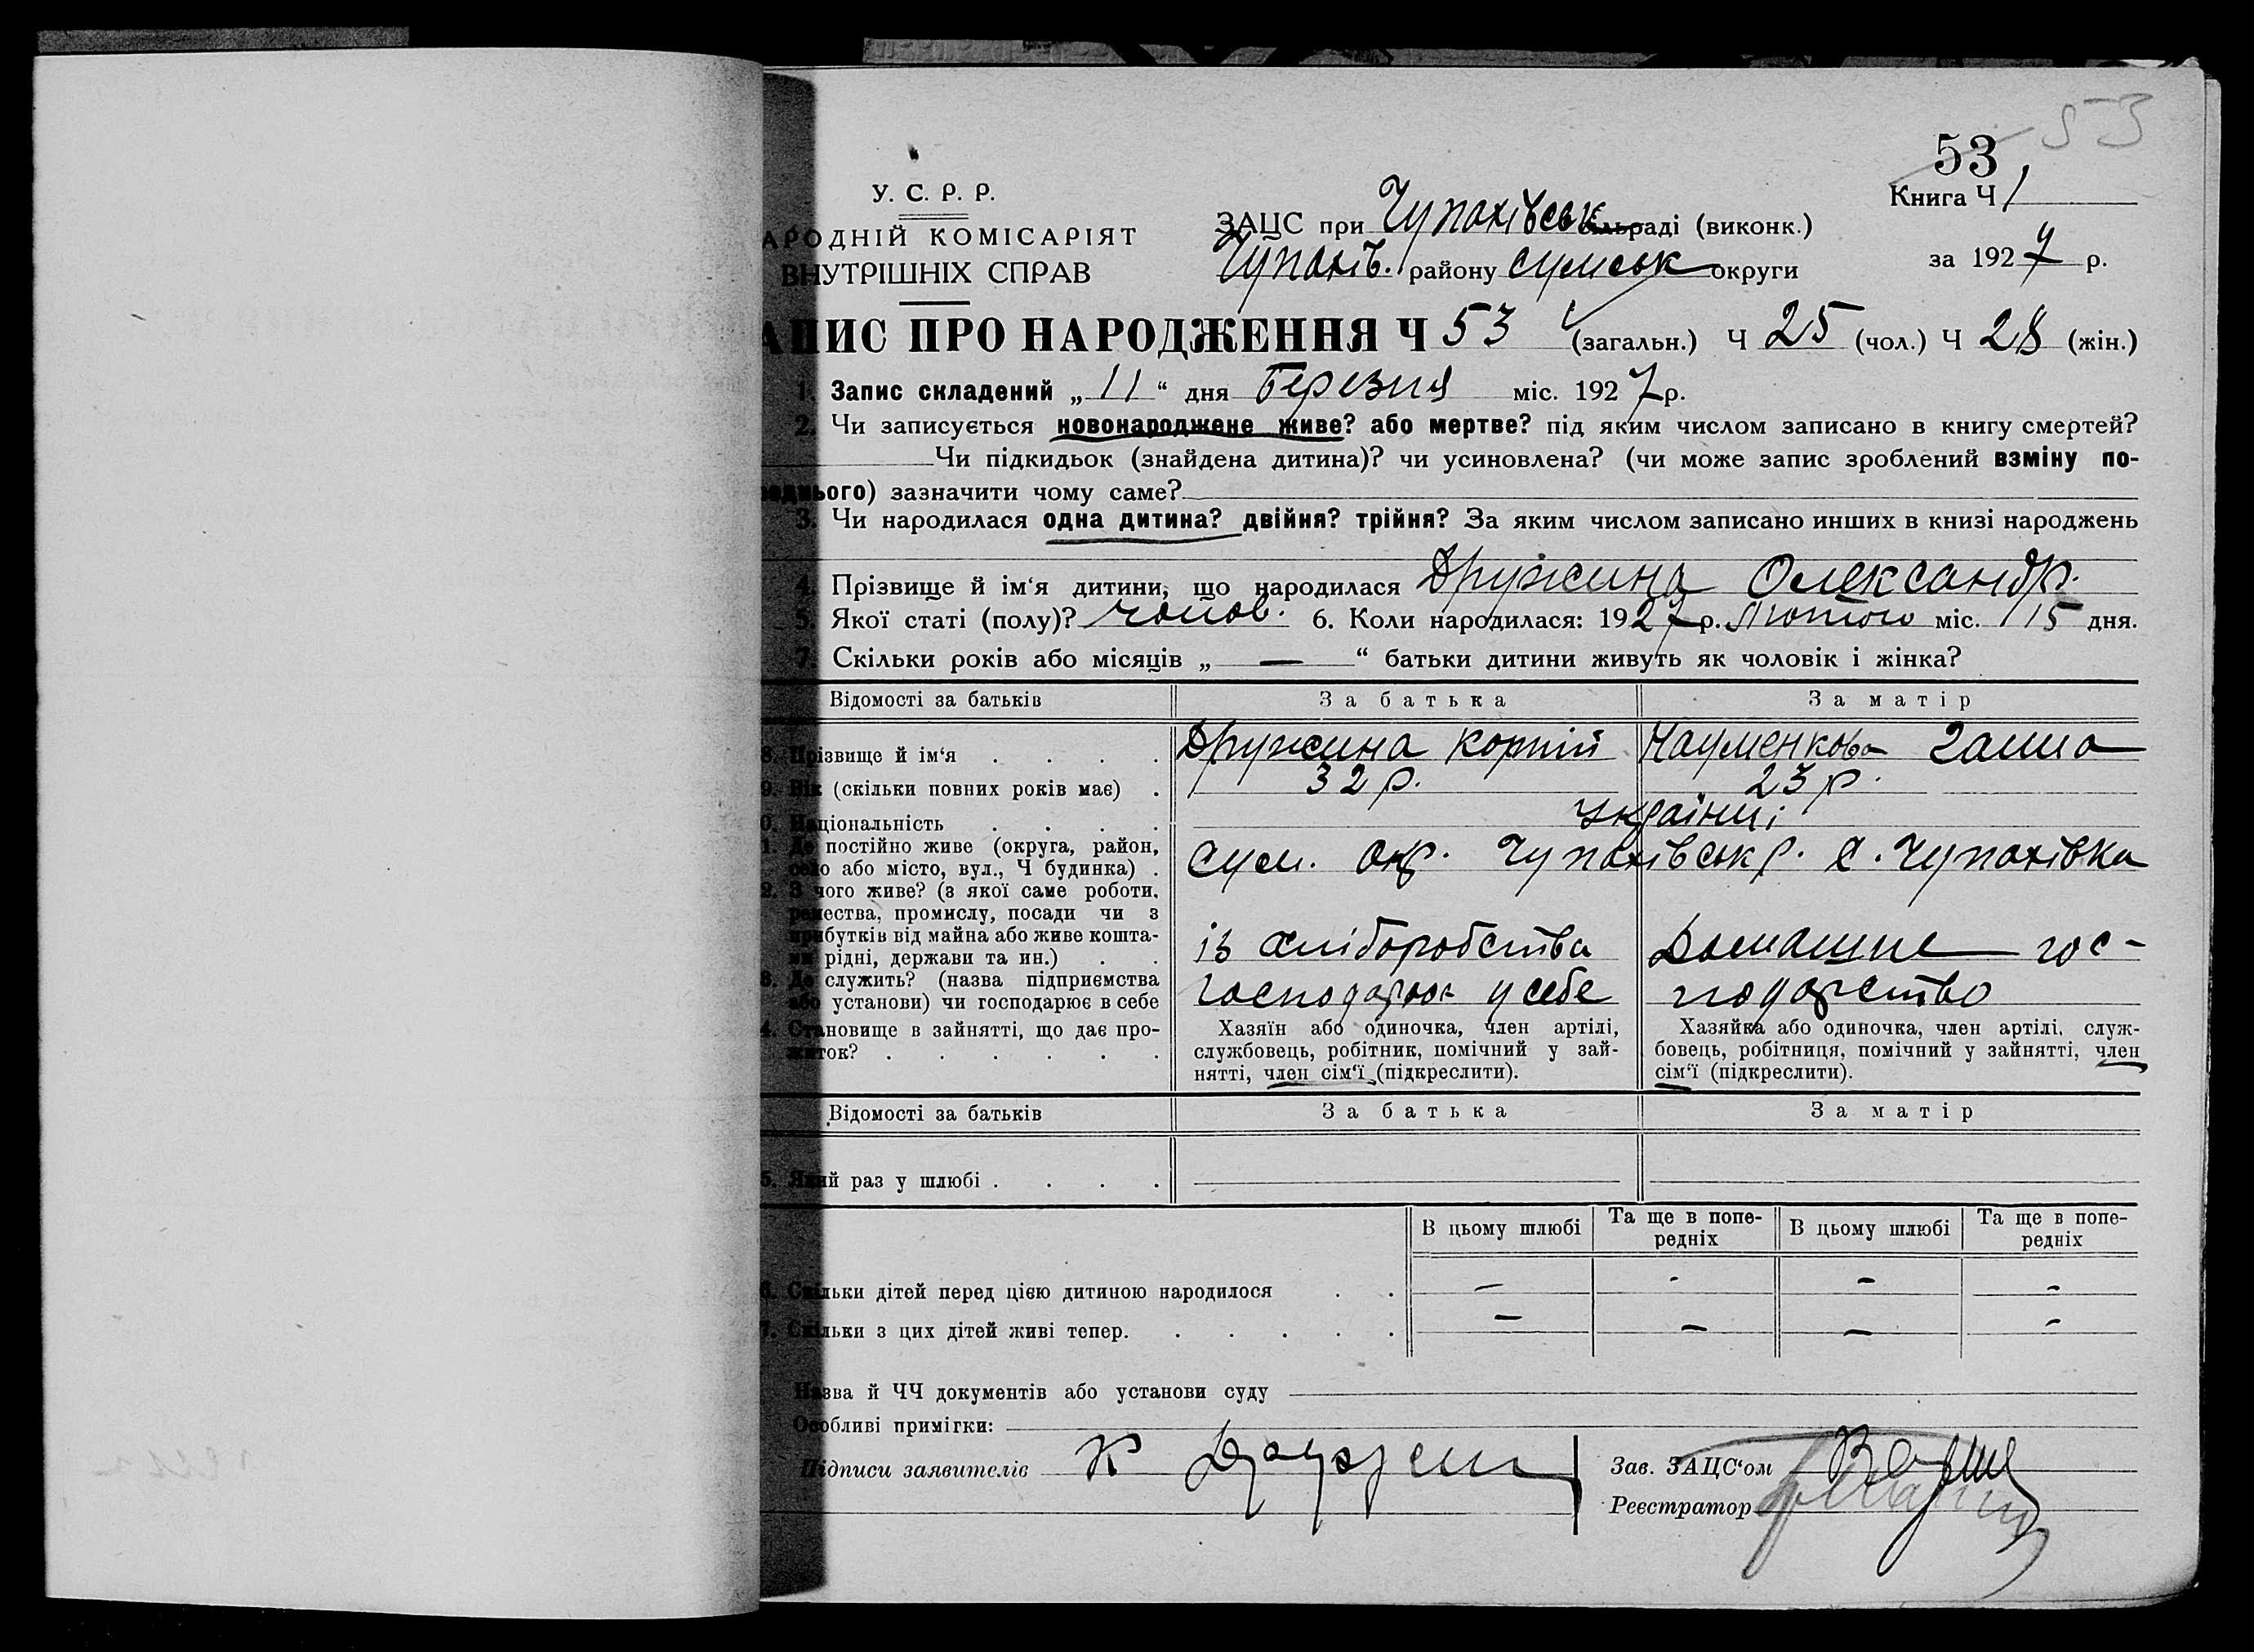 53
53
У. С. Р. Р.
Книга Ч 1
АРОДНІЙ КОМІСАРІЯТ
ВНУТРІШНІХ СПРАВ
ЗАЦС при Чупахівськ сільраді (виконк.)
Чупахів. району Сумськ округи
за 1927 р.
АПИС ПРО НАРОДЖЕННЯ Ч 53 (загальн.) Ч 25 (чол.) Ч 28 (жін.)
1. Запис складений „ 11 “ дня Березня міс. 1927 р.
2. Чи записується новонароджене живе? або мертве? під яким числом записано в книгу смертей?
Чи підкидьок (знайдена дитина)? чи усиновлена? (чи може запис зроблений взміну по-
реднього) зазначити чому саме?
3. Чи народилася одна дитина? двійня? трійня? За яким числом записано инших в книзі народжень
4. Прізвище й ім‘я дитини, що народилася Дружина Олександр.
5. Якої статі (полу)? чолов. 6. Коли народилася: 1927 р. Лютого міс. 15 дня.
7. Скільки років або місяців „ — “ батьки дитини живуть як чоловік і жінка?
Відомості за батьків За батька За матір
8. Прізвище й ім‘я . . . . Дружина Корній Науменкова Галина
9. Вік (скільки повних років має) . 32 р. 23 р.
0. Національність . . . . Українці
1. Де постійно живе (округа, район,
село або місто, вул., Ч будинка) . Сум. Окр. Чупахівськ р. С. Чупахівка
2. З чого живе? (з якої саме роботи,
ремества, промислу, посади чи з
прибутків від майна або живе кошта-
ми рідні, держави та ин.) . . із хліборобства Домашнє гос-
3. Де служить? (назва підприємства
або установи) чи господарює в себе господарює у себе подарство
4. Становище в зайнятті, що дає про-
житок? . . . . . .
Хазяїн або одиночка, член артілі,
службовець, робітник, помічний у зай-
нятті, член сім‘ї (підкреслити).
Хазяйка або одиночка, член артілі, служ-
бовець, робітниця, помічний у зайнятті, член
сім‘ї (підкреслити).
Відомості за батьків За батька За матір
5. Який раз у шлюбі . . . .
В цьому шлюбі Та ще в попе-
редніх В цьому шлюбі Та ще в попе-
редніх
6. Скільки дітей перед цією дитиною народилося . . — - — -
7. Скільки з цих дітей живі тепер. . . . . . — — — -
Назва й ЧЧ документів або установи суду
Особливі примігки:
Підписи заявителів К
Зав. ЗАЦС‘ом
Реєстратор